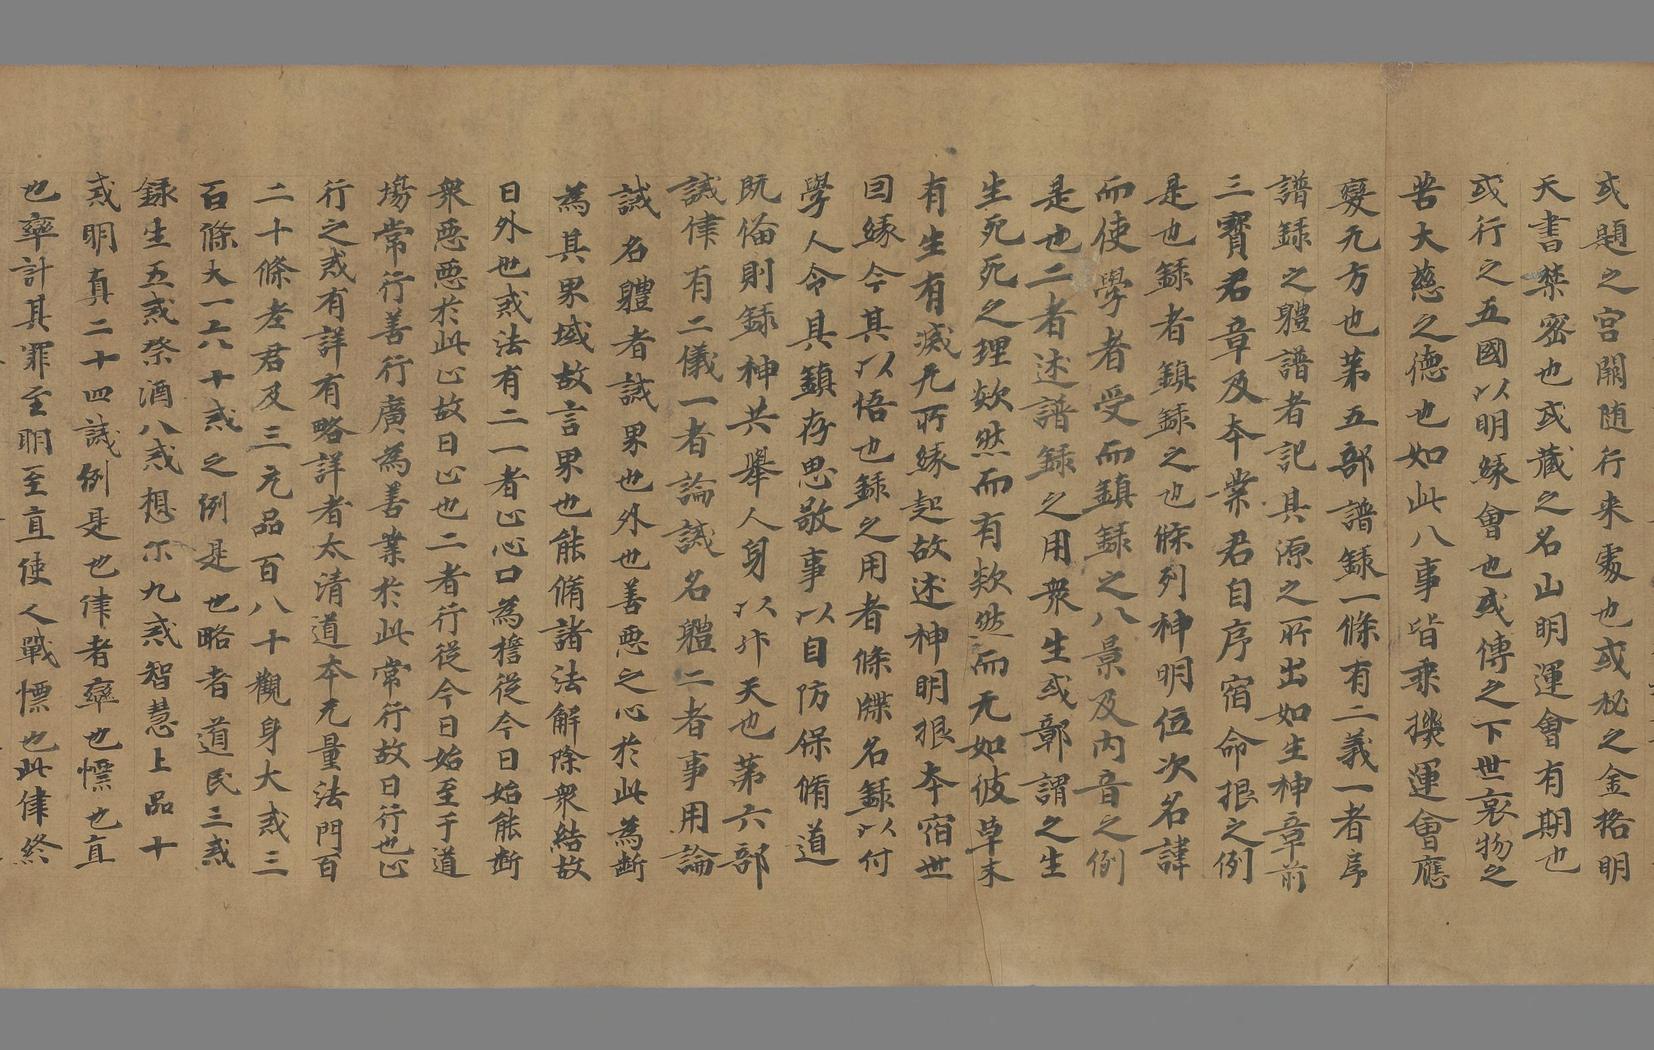 或題之宫闕随行来處也或秘之金格明
天書禁密也或藏之名山明運會有期也
或行之五國以明縁會也或傳之下世哀物之
苦大慈之德也如此八事皆乘機運會應
變无方也第五部譜録一條有二義一者序
譜録之軆譜者記其源之所出如生神章前
三寳君章及夲業君自序宿命根之例
是也録者鎮録之也條列神明位次名諱
而使學者受而鎮録之八景及内音之例
是也二者述譜録之用衆生或鄣謂之生
生死死之理欻然而有欻然而无如彼草木
有生有滅无所縁起故述神明根夲宿世
因縁令其以悟也録之用者條牒名録以付
學人令其鎮存思敬事以自防保脩道
既俻則録神共舉人身以升天也第六部
誡律有二儀一者論誡名軆二者事用論
誡名軆者誡界也外也善惡之心於此為斷
為其界域故言界也能脩諸法解除衆結故
日外也或法有二一者心心口為擔從今日始能斷
衆惡惡於此心故日心也二者行從今日始至于道
場常行善行廣為善業於此常行故日行也心
行之或有詳有略詳者太清道夲无量法門百
二十條老君及三元品百八十觀身大或三
百條大一六十或之例是也略者道民三或
録生五或祭酒八或想尒九或智慧上品十
或明真二十四誡例是也律者率也慓也直
也率計其罪至明至直使人戰慓也此律終